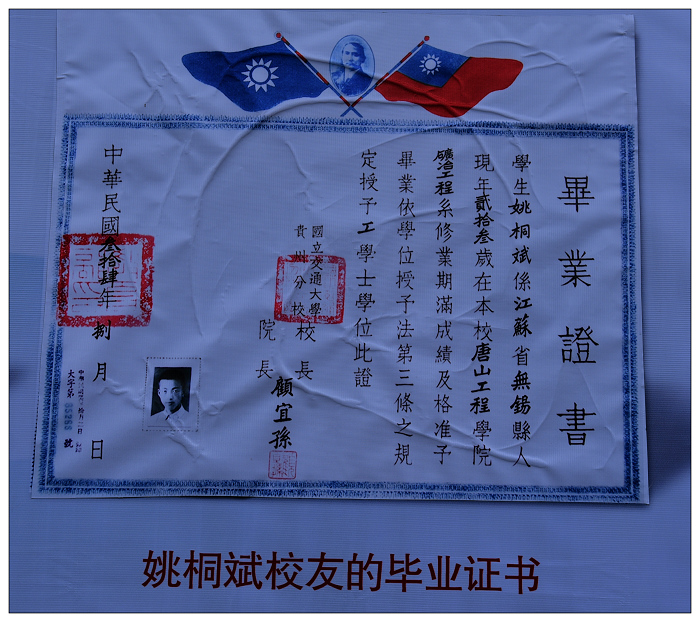 畢業證書
學生姚桐斌係江蘇省無錫縣人
現年貳拾叁歲在本校唐山工程學院
礦冶工程系修業期滿成績及格准予
畢業依學位授予法第三條之規
定授予工學士學位此證
國立交通大學
貴州分校
校長
院長 顧宜孫
中華民國叁拾肆年捌月 日
大字第 號
姚桐斌校友的毕业证书